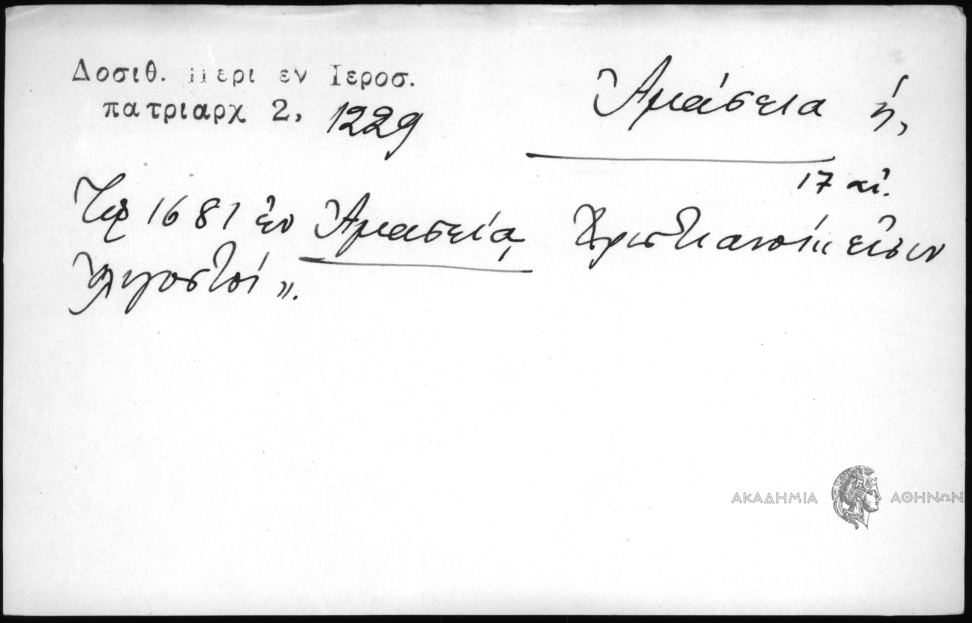 Δοσιθ. Περι εν Ιεροσ.
πατριαρχ 2, 1229
Ἀμάσεια ἡ,
17 αἰ.
Τῷ 1681 ἐν Ἀμασείᾳ Χριστιανοὶ εἰσιν
ὀλιγοστοί».
ΑΚΑΔΗΜΙΑ ΑΘΗΝΩΝ